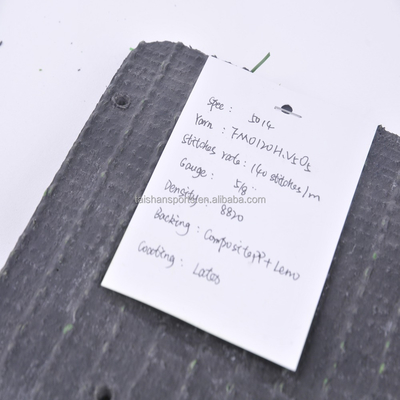 Spec: 5014
Yarn: 7M0120H.V5O5
Stitches rate: 140 stitches/m
Gauge: 5/8"
taishansports.en.alibaba.com
Density: 8820
Backing: Composite,PP+Leno
Coating: Latex